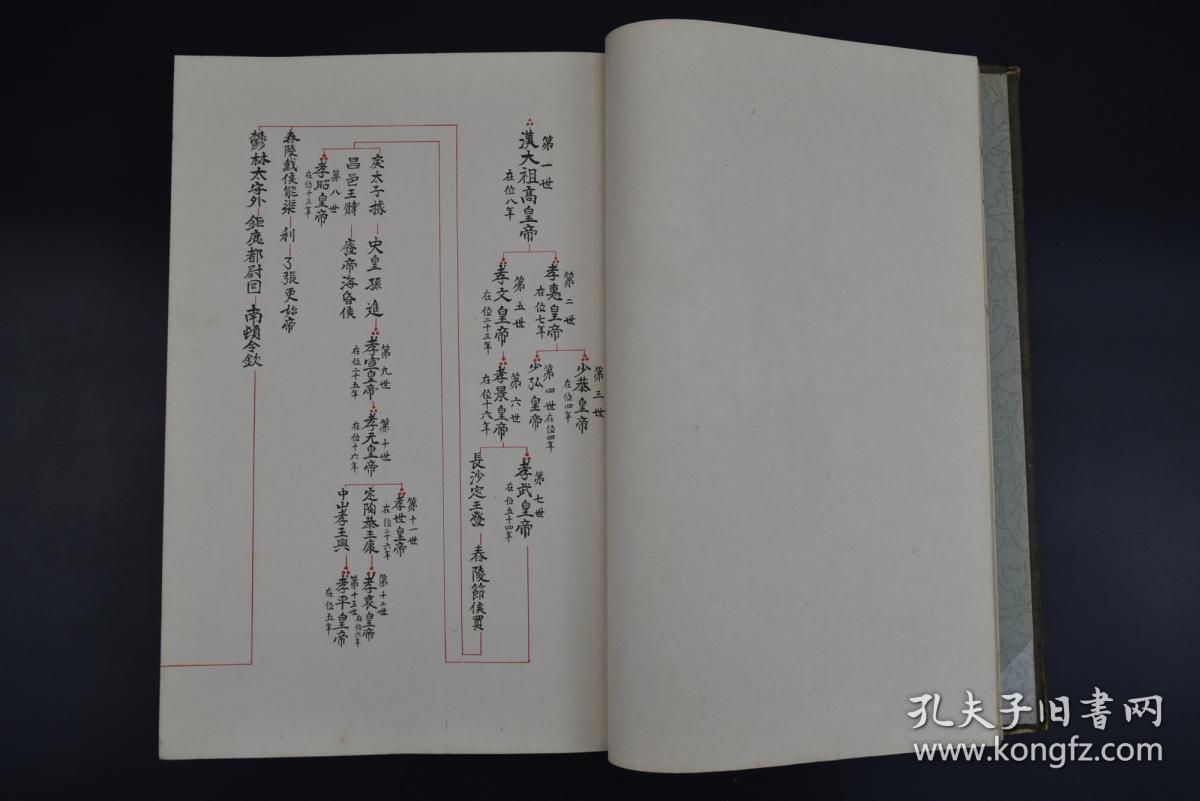 第一世
漢大祖高皇帝
在位八年
第二世
孝惠皇帝
在位七年
第三世
少恭皇帝
在位四年
第四世在位四年
少弘皇帝
第五世
孝文皇帝
在位二十三年
第六世
孝景皇帝
在位十六年
第七世
孝武皇帝
在位五十四年
長沙定王發
春陵節侯買
戾太子據
史皇孫進
第九世
孝宣皇帝
在位二十五年
第十世
孝元皇帝
在位十六年
第十一世
孝世皇帝
在位二十六年
定陶恭王康
第十二世
孝哀皇帝
在位六年
中山孝王興
第十三世
孝平皇帝
在位五年
昌邑王髆
廢帝海昏侯
第八世
孝昭皇帝
在位十三年
春陵戴侯能渠
利
了張更始帝
鬱林太守外
鉅鹿都尉回
南頓令欽
孔夫子旧書网
www.kongfz.com